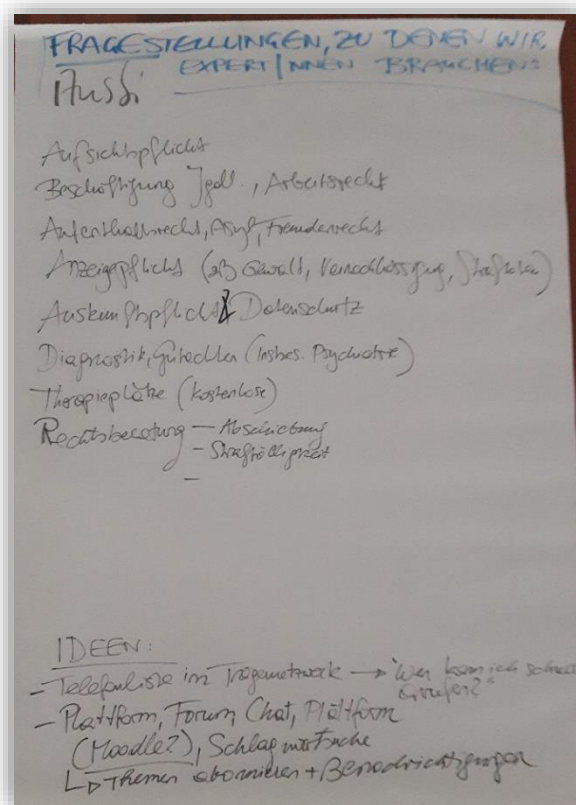 FRAGESTELLUNGEN, ZU DENEN WIR
EXPERT/INNEN BRAUCHEN:
Aufsichtspflicht
Beschäftigung Jgdl., Arbeitsrecht
Aufenthaltsrecht, Asyl, Fremdenrecht
Anzeigepflicht (zB Gewalt, Vernachlässigung, Straftaten)
Auskunftspflicht & Datenschutz
Diagnostik, Gutachten (insbes. Psychiatrie)
Therapieplätze (kostenlose)
Rechtsberatung – Abschiebung
- Straffälligkeit
-
IDEEN:
- Telefonliste im Trägernetzwerk → "Wer kann ich schnell
anrufen?"
- Plattform, Forum, Chat, Plattform
(Moodle?), Schlagwortsuche
↳ Themen abonnieren + Benachrichtigungen